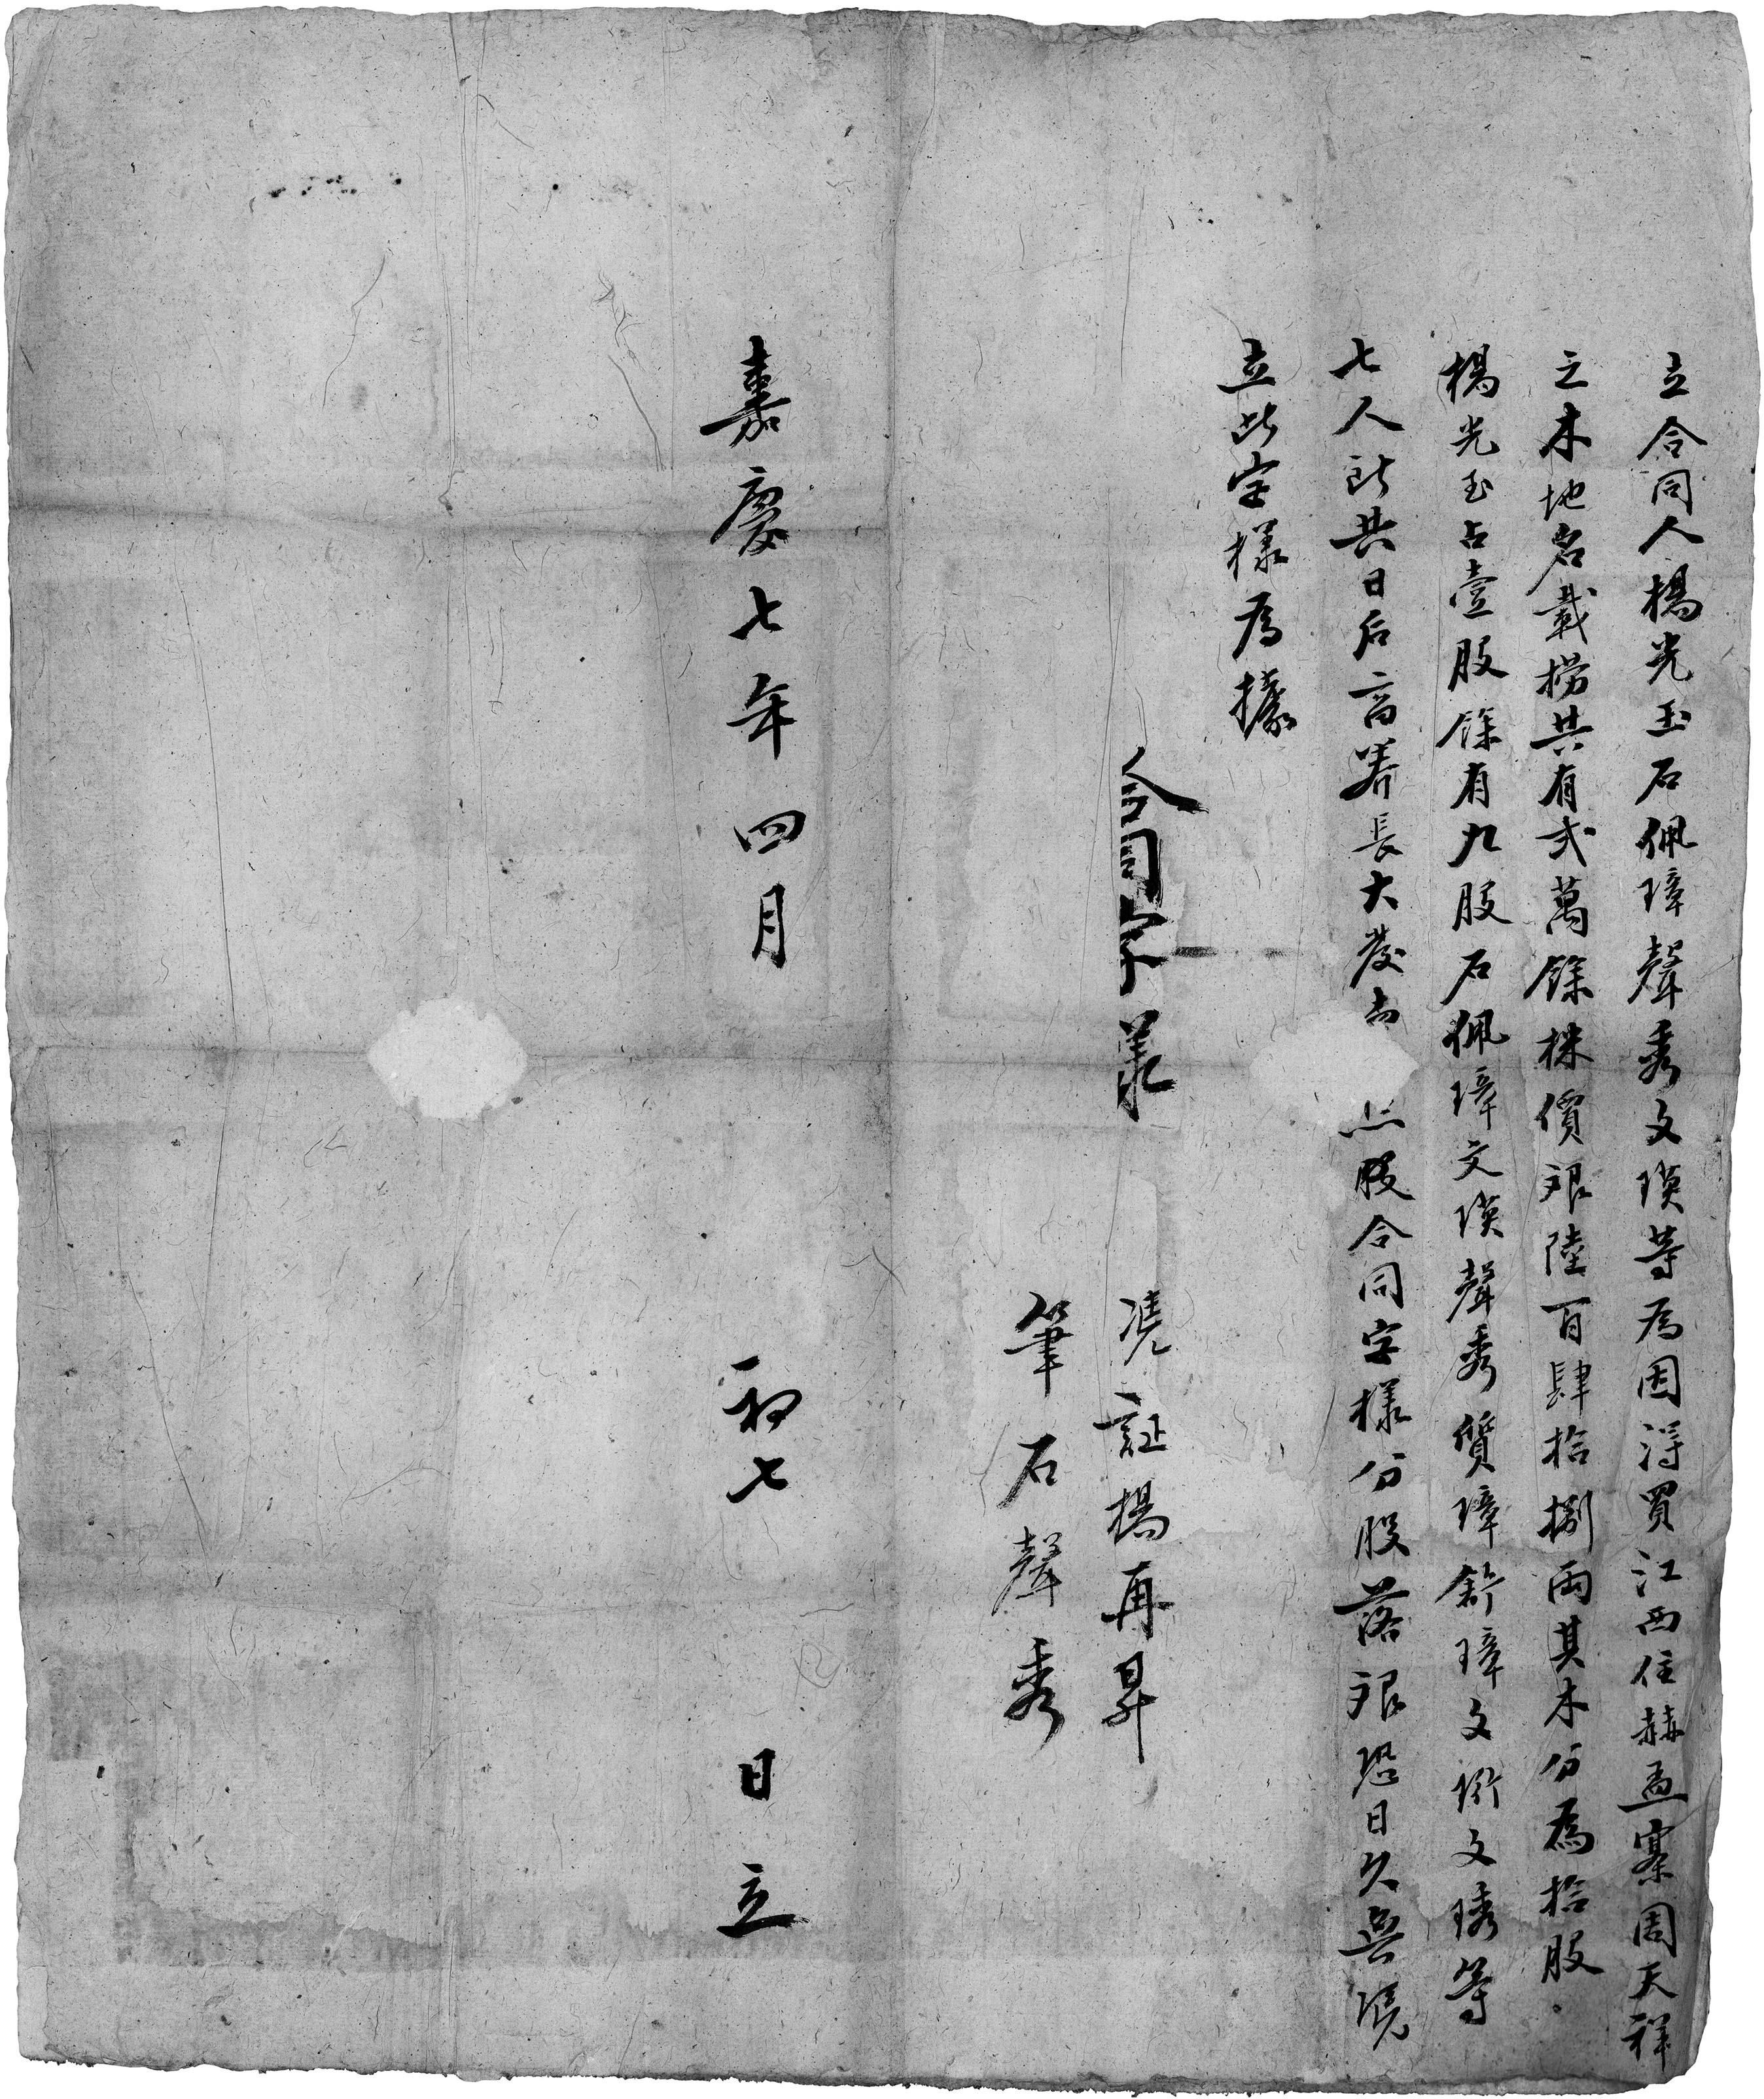 立合同人楊光玉石佩璋聲秀文瑛等為因得買江西住赫孟寨周天祥
之木地名載撈共有弍萬餘株價艮陸百肆拾捌兩其木分為拾股
楊光玉占壹股餘有九股石佩璋文瑛聲秀質璋舒璋文衍文琇等
七人所共日后畜養長大發賣照股合同字樣分股落艮恐日久無憑
立此字樣為據
合同字樣
憑証楊再昇
筆石聲秀
嘉慶七年四月初七日立